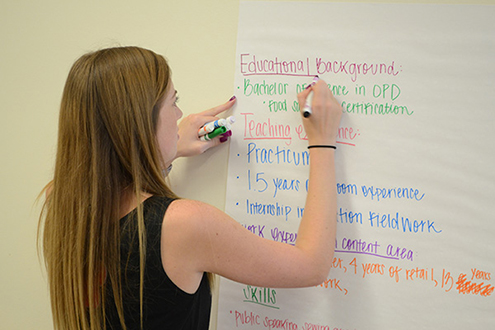 Educational Background:
• Bachelor of in OPD
• Food certification
Teaching
• Practicum
• 1.5 years experience
• Internship in Field Work
content area
4 years of retail, 13 years
Skills
• Public speaking